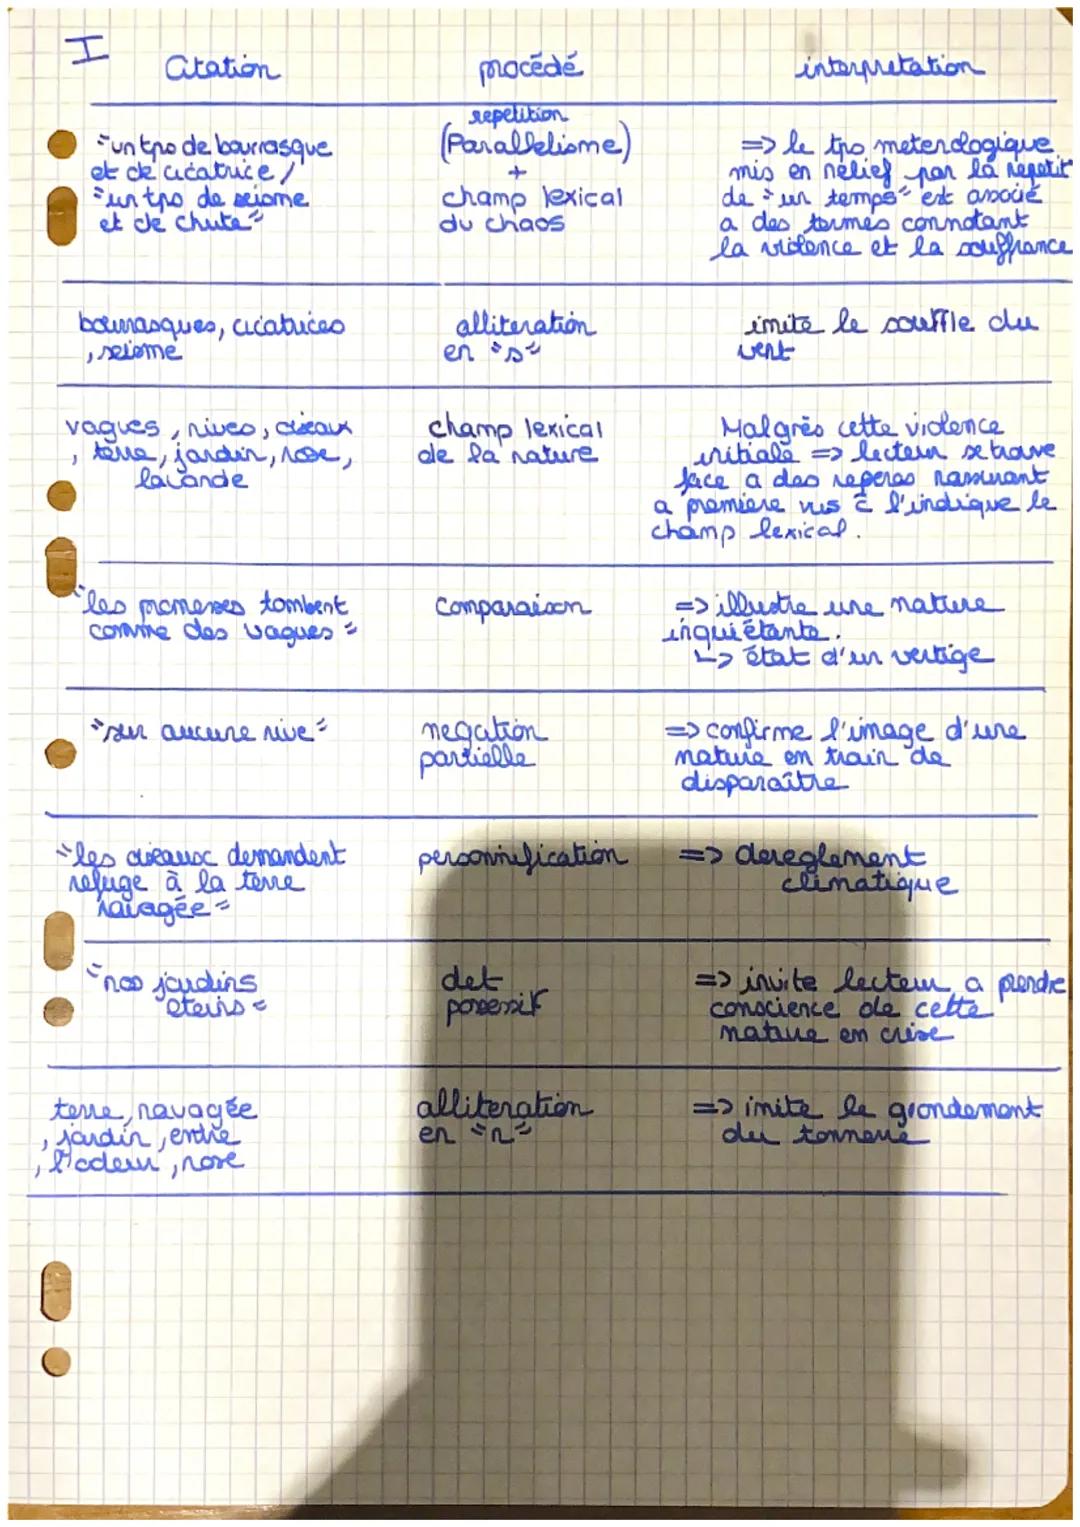 I
Citation procédé interpretation
"un tps de bourrasque
et de cicatrice /
"un tps de seisme
et de chute"
repetition
(Parallelisme)
+
champ lexical
du chaos
=> le tps meterologique
mis en relief par la repetit°
de "un temps" est associé
a des termes connotant
la violence et la souffrance
bourrasques, cicatrices
, seisme
alliteration
en "s"
imite le souffle du
vent
vagues, rives, oiseaux
, terre, jardin, rose,
lavande
champ lexical
de la nature
Malgrès cette violence
initiale => lecteur se trouve
face a des reperes rassurant
a premiere vus c̄ l'indique le
champ lexical.
"les promesses tombent
comme des vagues"
comparaison
=> illustre une nature
inquiétante.
↳ état d'un vertige
"sur aucune rive"
negation
partielle
=> confirme l'image d'une
nature en train de
disparaître
"les oiseaux demandent
refuge à la terre
ravagée"
personnification
=> dereglement
climatique
"nos jardins
eteins"
det
possessif
=> invite lecteur a prendre
conscience de cette
nature en crise
terre, ravagée
, jardin, entre
, l'odeur, rose
alliteration
en "r"
=> imite le grondement
du tonnerre